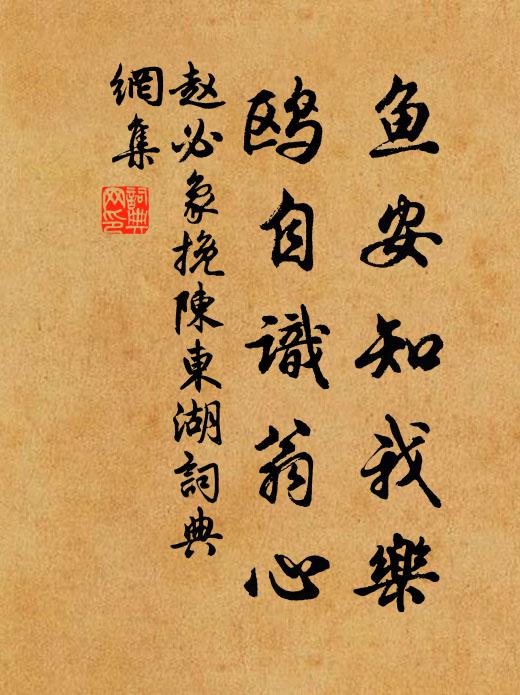 鱼安知我樂
鸥自識翁心
赵必象挽陳東湖詞典
網集
詞典
网印